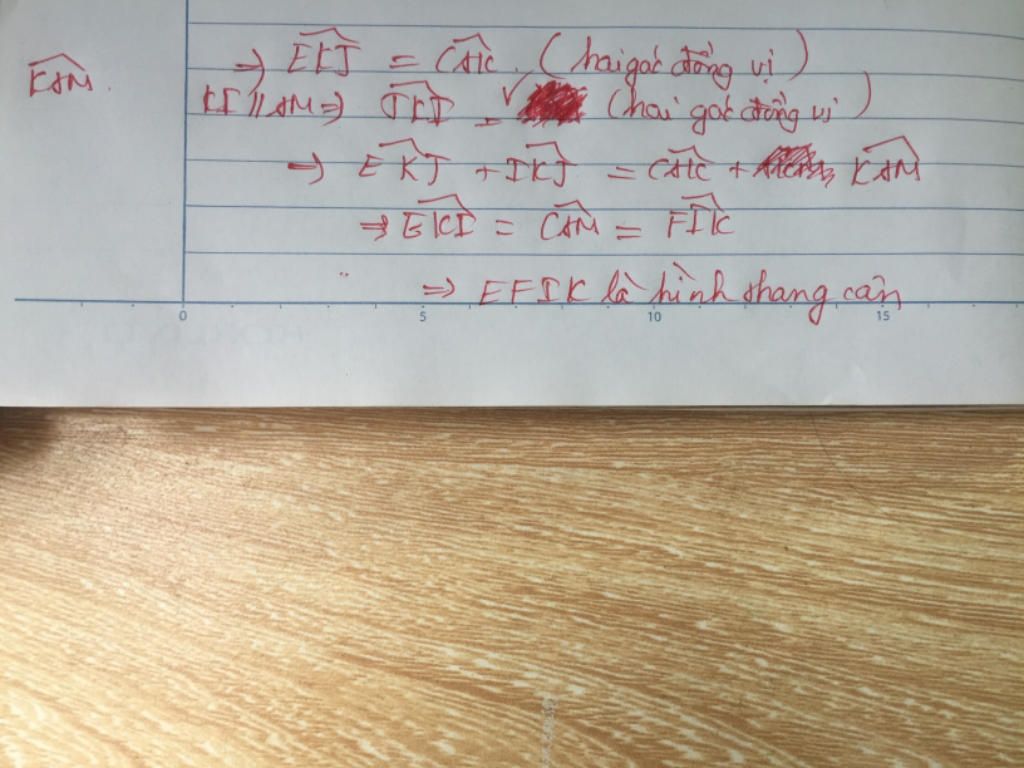 ⇒ \widehat{EKJ} = \widehat{CAK} (hai góc đồng vị)
\widehat{KAM}.
KI // AM ⇒ \widehat{JKI} = √ (hai góc đồng vị)
⇒ \widehat{EKJ} + \widehat{IKJ} = \widehat{CAK} + \widehat{KAM}
⇒ \widehat{EKI} = \widehat{CAM} = \widehat{FIK}
⇒ EFIK là hình thang cân
0 5 10 15